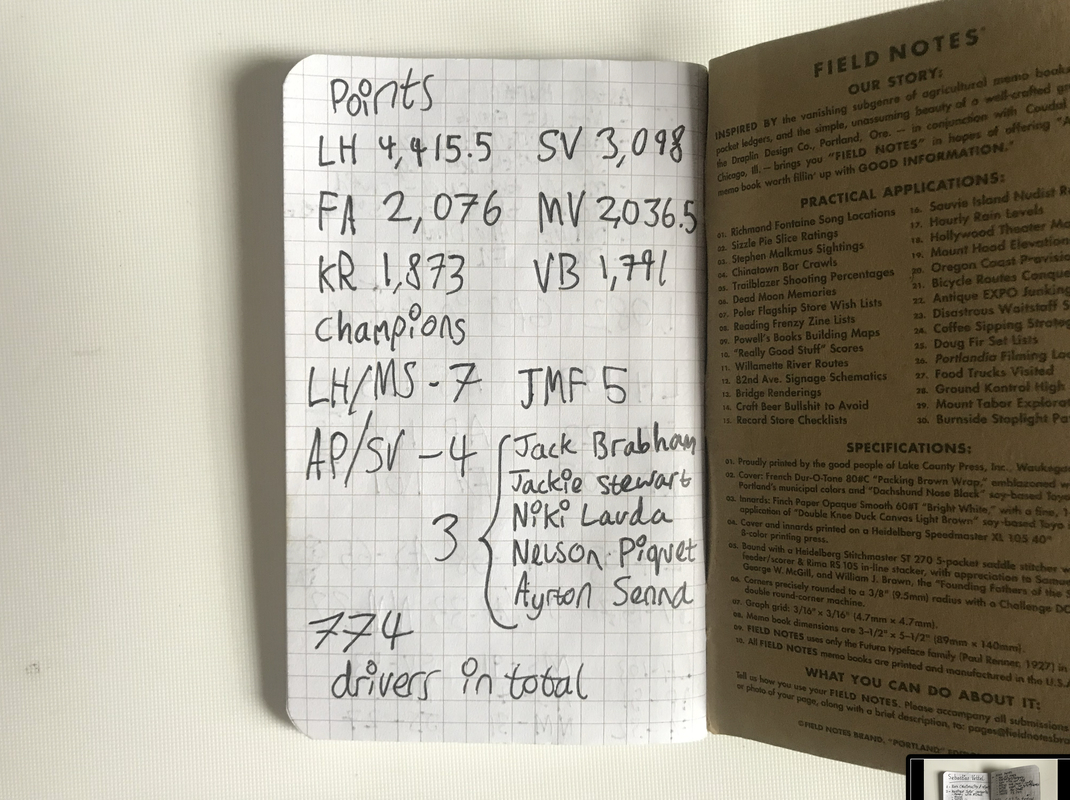 Points
LH 4,415.5 SV 3,098
FA 2,076 MV 2,036.5
KR 1,873 VB 1,791
Champions
LH/MS - 7 JMF 5
AP/SV - 4
3
Jack Brabham
Jackie Stewart
Niki Lauda
Nelson Piquet
Ayrton Senna
774
drivers in total
FIELD NOTES
OUR STORY:
INSPIRED BY the vanishing subgenre of agricultural memo books
pocket ledgers, and the simple, unassuming beauty of a well-crafted
the Draplin Design Co., Portland, Ore. — in conjunction with Coudal
Chicago, Ill. — brings you "FIELD NOTES" in hopes of offering
memo book worth fillin' up with GOOD INFORMATION."
PRACTICAL APPLICATIONS:
01. Richmond Fontaine Song Locations
02. Sizzle Pie Slice Ratings
03. Stephen Malkmus Sightings
04. Chinatown Bar Crawls
05. Trailblazer Shooting Percentages
06. Dead Moon Memories
07. Poler Flagship Store Wish Lists
08. Reading Frenzy Zine Lists
09. Powell's Books Building Maps
10. "Really Good Stuff" Scores
11. Willamette River Routes
12. 82nd Ave. Signage Schematics
13. Bridge Renderings
14. Craft Beer Bullshit to Avoid
15. Record Store Checklists
16. Sauvie Island Nudist
17. Hourly Rain Levels
18. Hollywood Theater
19. Mount Hood Elevation
20. Oregon Coast
21. Bicycle Routes
22. Antique EXPO
23. Disastrous Waitstaff
24. Coffee Sipping
25. Doug Fir Set Lists
26. Portlandia Filming
27. Food Trucks Visited
28. Ground Kontrol High
29. Mount Tabor
30. Burnside Stoplight
SPECIFICATIONS:
01. Proudly printed by the good people of Lake County Press, Inc.,
02. Cover: French Dur-O-Tone 80#C "Packing Brown Wrap," emblazoned
Portland's municipal colors and "Dachshund Nose Black" soy-based
03. Innards: Finch Paper Opaque Smooth 60#T "Bright White," with a fine,
application of "Double Knee Duck Canvas Light Brown" soy-based
04. Cover and innards printed on a Heidelberg Speedmaster XL 105 40"
8-color printing press.
05. Bound with a Heidelberg Stitchmaster ST 270 5-pocket saddle stitcher
feeder/scorer & Rima RS 105 in-line stacker, with appreciation to
George W. McGill, and William J. Brown, the "Founding Fathers of the
06. Corners precisely rounded to a 3/8" (9.5mm) radius with a Challenge
double round-corner machine.
07. Graph grid: 3/16" x 3/16" (4.7mm x 4.7mm).
08. Memo book dimensions are 3-1/2" x 5-1/2" (89mm x 140mm).
09. FIELD NOTES uses only the Futura typeface family (Paul Renner, 1927) in
10. All FIELD NOTES memo books are printed and manufactured in the U.S.A.
WHAT YOU CAN DO ABOUT IT:
Tell us how you use your FIELD NOTES. Please accompany all submissions
or photo of your page, along with a brief description, to:
©FIELD NOTES BRAND, "PORTLAND"